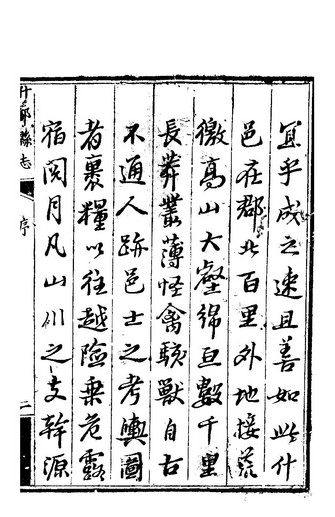 宜乎成之速且善如此什
邑在郡北百里外地接荒
徼高山大壑綿亘數千里
長莽叢薄怪禽駭獸自古
不通人跡邑士之考輿圖
者裹糧以往越險乗危露
宿閱月凡山川之支幹源
什邡縣志
序
二